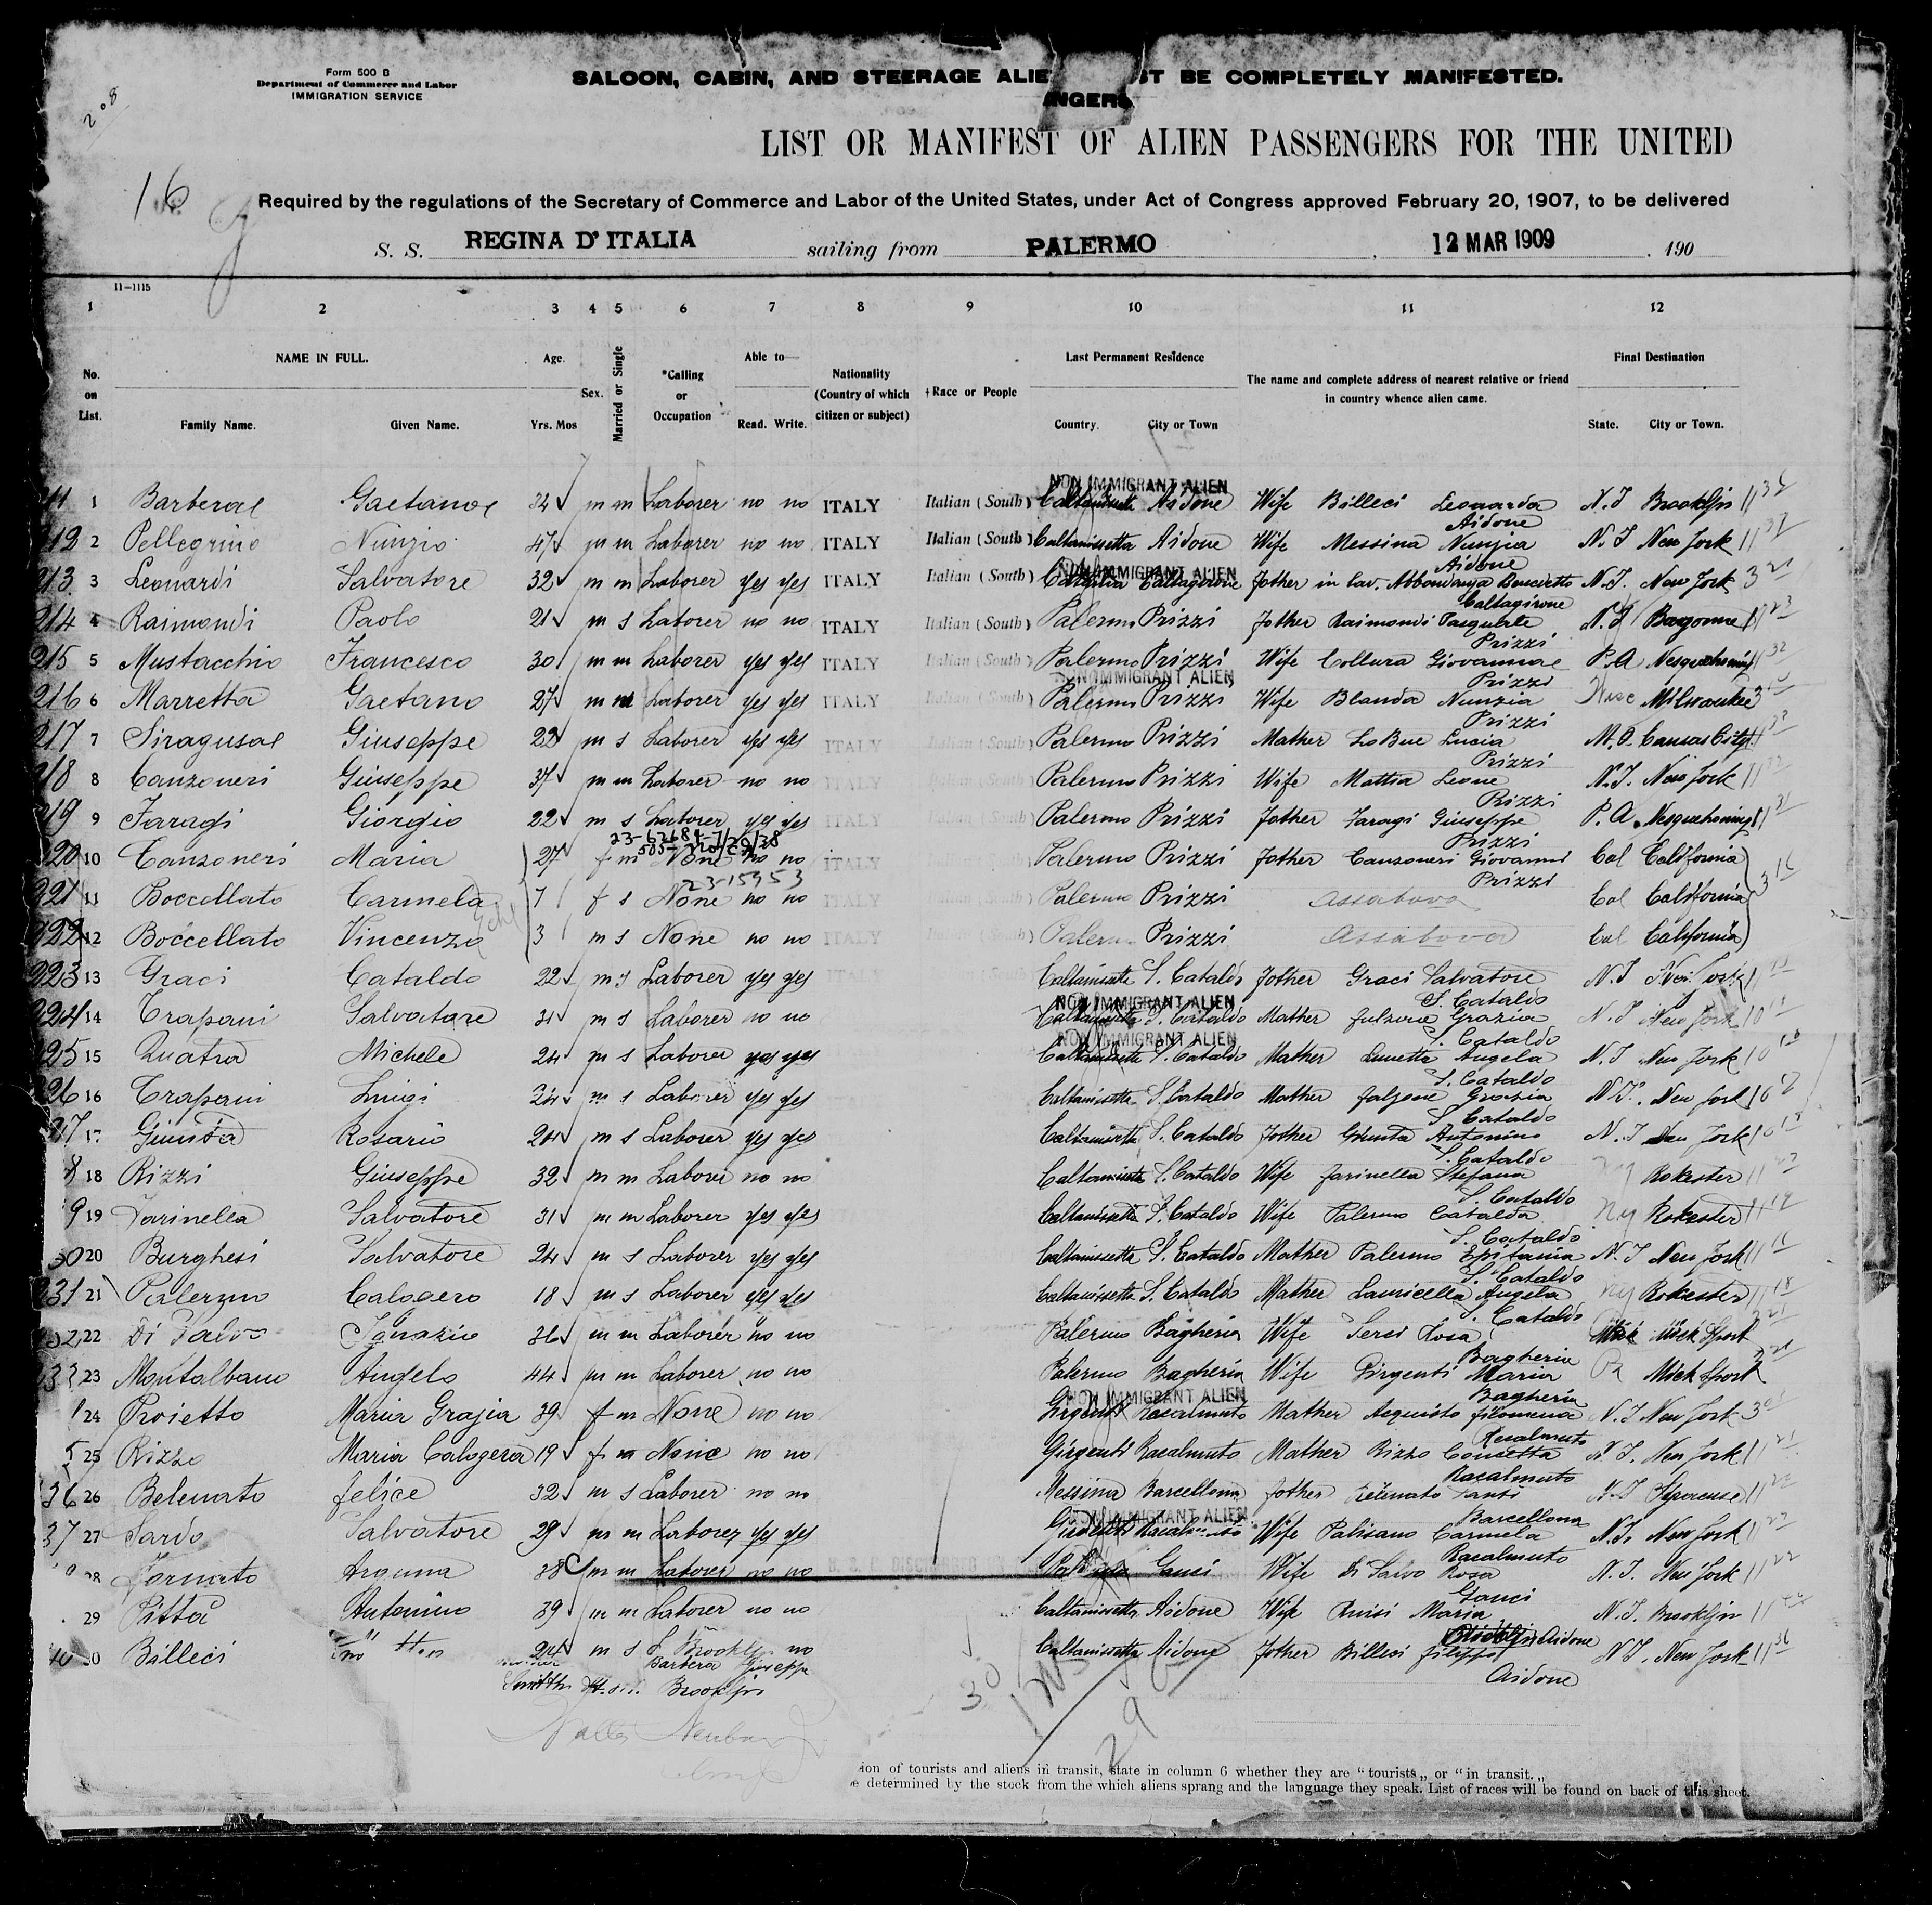 Form 500 B
Department of Commerce and Labor
IMMIGRATION SERVICE
SALOON, CABIN, AND STEERAGE ALIE ST BE COMPLETELY MANIFESTED.
NGERS
208
LIST OR MANIFEST OF ALIEN PASSENGERS FOR THE UNITED
16
Required by the regulations of the Secretary of Commerce and Labor of the United States, under Act of Congress approved February 20, 1907, to be delivered
S. S. REGINA D'ITALIA sailing from PALERMO, 12 MAR 1909. 190
11-1115
1 2 3 4 5 6 7 8 9 10 11 12
No. on List. NAME IN FULL. Family Name. Given Name. Age. Yrs. Mos Sex. Married or Single *Calling or Occupation Able to— Read. Write. Nationality (Country of which citizen or subject) †Race or People Last Permanent Residence Country. City or Town The name and complete address of nearest relative or friend in country whence alien came. Final Destination State. City or Town.
NON IMMIGRANT ALIEN
211 1 Barbera Gaetano 34 m m Laborer no no ITALY Italian (South) Caltanissetta Aidone Wife Billeci Leonarda Aidone N.J Brooklin
212 2 Pellegrino Nunzio 47 m m Laborer no no ITALY Italian (South) Caltanissetta Aidone Wife Messina Nunzia Aidone N.J New Jork
NON IMMIGRANT ALIEN
213 3 Leonardi Salvatore 32 m m Laborer yes yes ITALY Italian (South) Catania Caltagirone father in law. Abbondanza Benedetto Caltagirone N.J. New Jork
214 4 Raimondi Paolo 21 m s Laborer no no ITALY Italian (South) Palermo Prizzi father Raimondi Pasquale Prizzi N.J Bayonne
215 5 Mustacchio Francesco 30 m m Laborer yes yes ITALY Italian (South) Palermo Prizzi Wife Collura Giovanna Prizzi P.A Nesquehoning
NON IMMIGRANT ALIEN
216 6 Marretta Gaetano 27 m m Laborer yes yes ITALY Italian (South) Palermo Prizzi Wife Blanda Nunzia Prizzi Wisc Milwaukee
217 7 Siragusa Giuseppe 22 m s Laborer yes yes ITALY Italian (South) Palermo Prizzi Mather Lo Bue Lucia Prizzi M.O. Cansas City
218 8 Canzoneri Giuseppe 37 m m Laborer no no ITALY Italian (South) Palermo Prizzi Wife Mattia Leone Prizzi N.J. New Jork
219 9 Faragi Giorgio 22 m s Laborer yes yes ITALY Italian (South) Palermo Prizzi father Faragi Giuseppe Prizzi P.A. Nesquehoning
220 10 Canzoneri Maria 27 f m None no no ITALY Palermo Prizzi father Canzoneri Giovanni Prizzi Cal California
23-15953
221 11 Boccellato Carmela 7 f s None no no ITALY Palermo Prizzi Cal California
222 12 Boccellato Vincenzo 3 m s None no no ITALY Palermo Prizzi Cal California
223 13 Graci Cataldo 22 m s Laborer yes yes Caltanissetta S. Cataldo father Graci Salvatore S. Cataldo N.J New Jork
NON IMMIGRANT ALIEN
224 14 Trapani Salvatore 31 m s Laborer no no Caltanissetta S. Cataldo Mather Grazia S. Cataldo N.J New Jork
NON IMMIGRANT ALIEN
225 15 Quatra Michele 24 m s Laborer yes yes Caltanissetta S. Cataldo Mather Lunetta Angela S. Cataldo N.J New Jork
226 16 Trapani Luigi 24 m s Laborer yes yes Caltanissetta S. Cataldo Mather Falzone Grazia S. Cataldo N.J. New Jork
227 17 Giunta Rosario 24 m s Laborer yes yes Caltanissetta S. Cataldo father Giunta Antonino S. Cataldo N.J New Jork
8 18 Rizzi Giuseppe 32 m m Laborer no no Caltanissetta S. Cataldo Wife Farinella Stefana S. Cataldo NY Rokester
9 19 Farinella Salvatore 31 m m Laborer yes yes Caltanissetta S. Cataldo Wife Palermo Catalda S. Cataldo NY Rokester
30 20 Burghesi Salvatore 24 m s Laborer yes yes Caltanissetta S. Cataldo Mather Palermo Epifania S. Cataldo N.J New Jork
231 21 Palermo Calogero 18 m s Laborer yes yes Caltanissetta S. Cataldo Mather Lauricella Angela S. Cataldo NY Rokester
232 22 Di Salvo Ignazio 36 m m Laborer no no Palermo Bagheria Wife Serci Rosa Bagheria Mick Sport
233 23 Montalbano Angelo 44 m m Laborer no no Palermo Bagheria Wife Girgenti Maria Bagheria Pa Mick Sport
NON IMMIGRANT ALIEN
24 Proietto Maria Grazia 39 f m None no no Girgenti Racalmuto Mather Acquisto Filomena Racalmuto N.J New Jork
5 25 Rizzo Maria Calogera 19 f m None no no Girgenti Racalmuto Mather Rizzo Concetta Racalmuto N.J. New Jork
36 26 Belenato Felice 32 m s Laborer no no Messina Barcellona father Santi Barcellona N.J Siracuse
NON IMMIGRANT ALIEN
37 27 Sardo Salvatore 29 m m Laborer yes yes Girgenti Racalmuto Wife Palisano Carmela Racalmuto N.J. New Jork
28 Fornato 38 m m Laborer no no Ganci Wife Di Salvo Rosa Ganci N.J. New Jork
29 Pitta Antonino 39 m m Laborer no no Caltanissetta Aidone Wife Maria Aidone N.J. Brooklin
40 30 Billeci 24 m s no Caltanissetta Aidone father Billeci Filippo Aidone N.J. New Jork
Barbera Giuseppe
Smith St. Brooklin
30
29
ion of tourists and aliens in transit, state in column 6 whether they are "tourists„ or "in transit.„
e determined by the stock from the which aliens sprang and the language they speak. List of races will be found on back of this sheet.